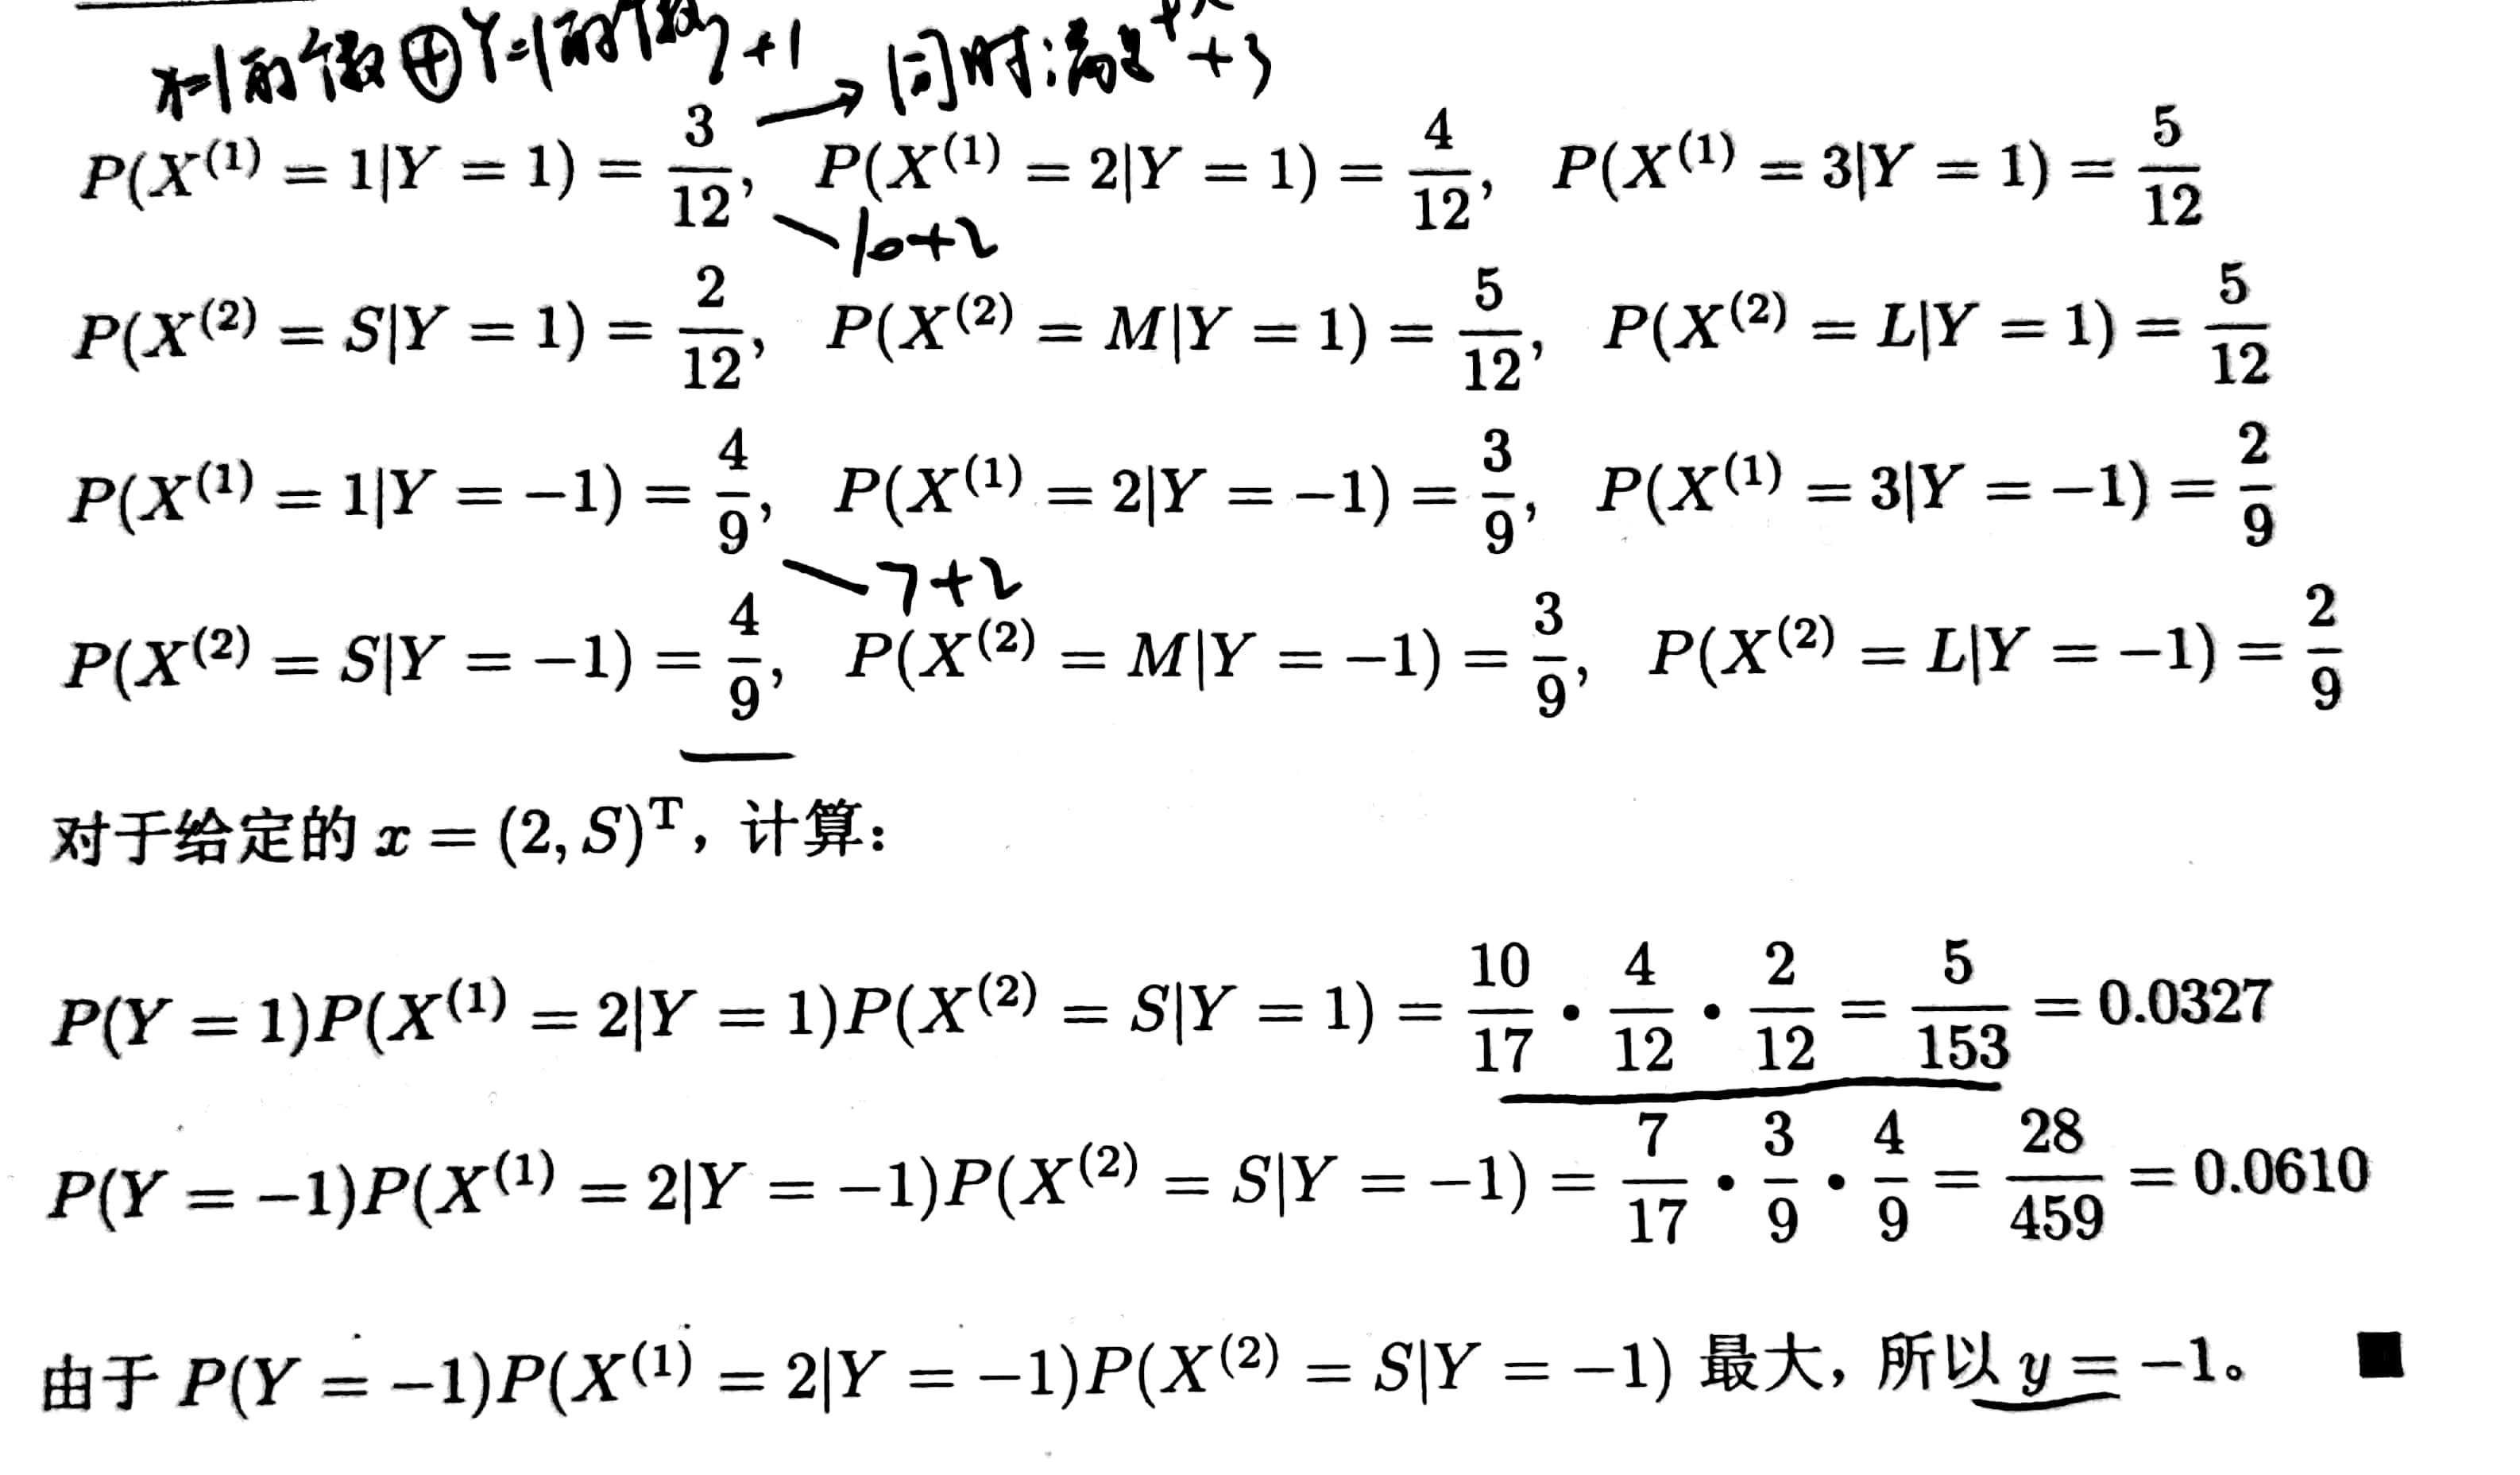 x=1的个数 由Y=1的个数 +1
同时满足 +3
P(X^(1) = 1|Y = 1) = 3/12, P(X^(1) = 2|Y = 1) = 4/12, P(X^(1) = 3|Y = 1) = 5/12
10+2
P(X^(2) = S|Y = 1) = 2/12, P(X^(2) = M|Y = 1) = 5/12, P(X^(2) = L|Y = 1) = 5/12
P(X^(1) = 1|Y = −1) = 4/9, P(X^(1) = 2|Y = −1) = 3/9, P(X^(1) = 3|Y = −1) = 2/9
7+2
P(X^(2) = S|Y = −1) = 4/9, P(X^(2) = M|Y = −1) = 3/9, P(X^(2) = L|Y = −1) = 2/9
对于给定的 x = (2, S)^T，计算：
P(Y = 1)P(X^(1) = 2|Y = 1)P(X^(2) = S|Y = 1) = 10/17 • 4/12 • 2/12 = 5/153 = 0.0327
P(Y = −1)P(X^(1) = 2|Y = −1)P(X^(2) = S|Y = −1) = 7/17 • 3/9 • 4/9 = 28/459 = 0.0610
由于 P(Y = −1)P(X^(1) = 2|Y = −1)P(X^(2) = S|Y = −1) 最大，所以 y = −1。 ■